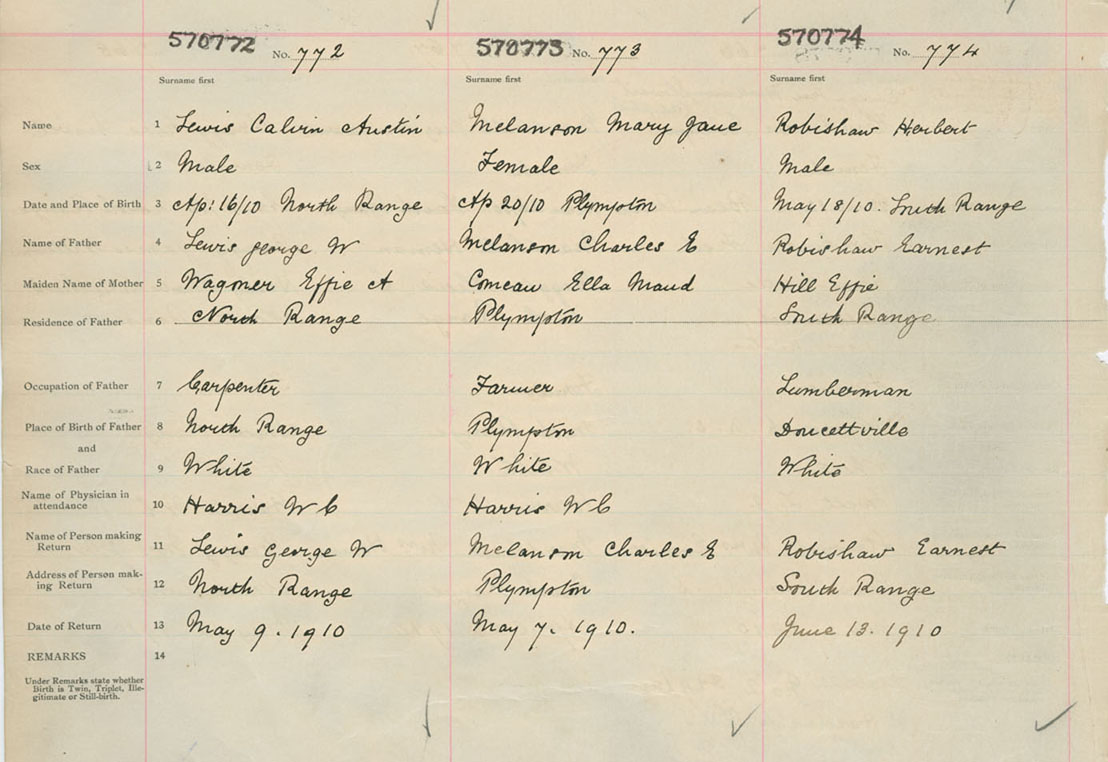 570772 No. 772 570773 No. 773 570774 No. 774
Surname first Surname first Surname first
Name 1 Lewis Calvin Austin Melanson Mary Jane Robishaw Herbert
Sex 2 Male Female Male
Date and Place of Birth 3 Ap: 16/10 North Range Ap 20/10 Plympton May 18/10. South Range
Name of Father 4 Lewis George W Melanson Charles E Robishaw Earnest
Maiden Name of Mother 5 Wagoner Effie A Comeau Ella Maud Hill Effie
Residence of Father 6 North Range Plympton South Range
Occupation of Father 7 Carpenter Farmer Lumberman
Place of Birth of Father 8 North Range Plympton Doucettville
and
Race of Father 9 White White White
Name of Physician in
attendance 10 Harris W C Harris W C
Name of Person making
Return 11 Lewis George W Melanson Charles E Robishaw Earnest
Address of Person mak-
ing Return 12 North Range Plympton South Range
Date of Return 13 May 9. 1910 May 7. 1910. June 13. 1910
REMARKS 14
Under Remarks state whether
Birth is Twin, Triplet, Ille-
gitimate or Still-birth.